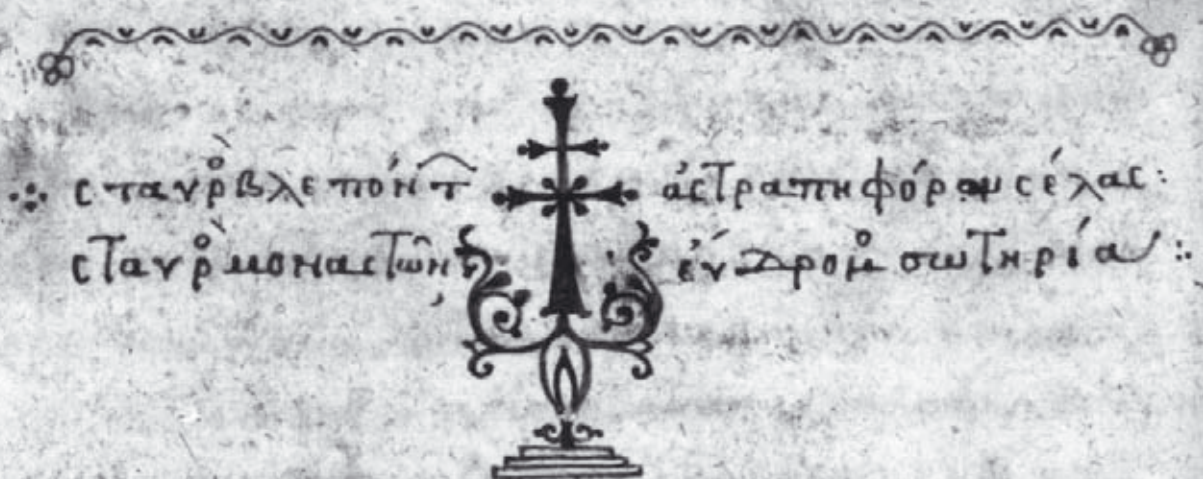 ⁘ σταυρὸ βλεπόν͂τ ἀστραπηφόρον σέλας :
σταυρὸ μοναστῶν εὔδρομο σωτηρία :·